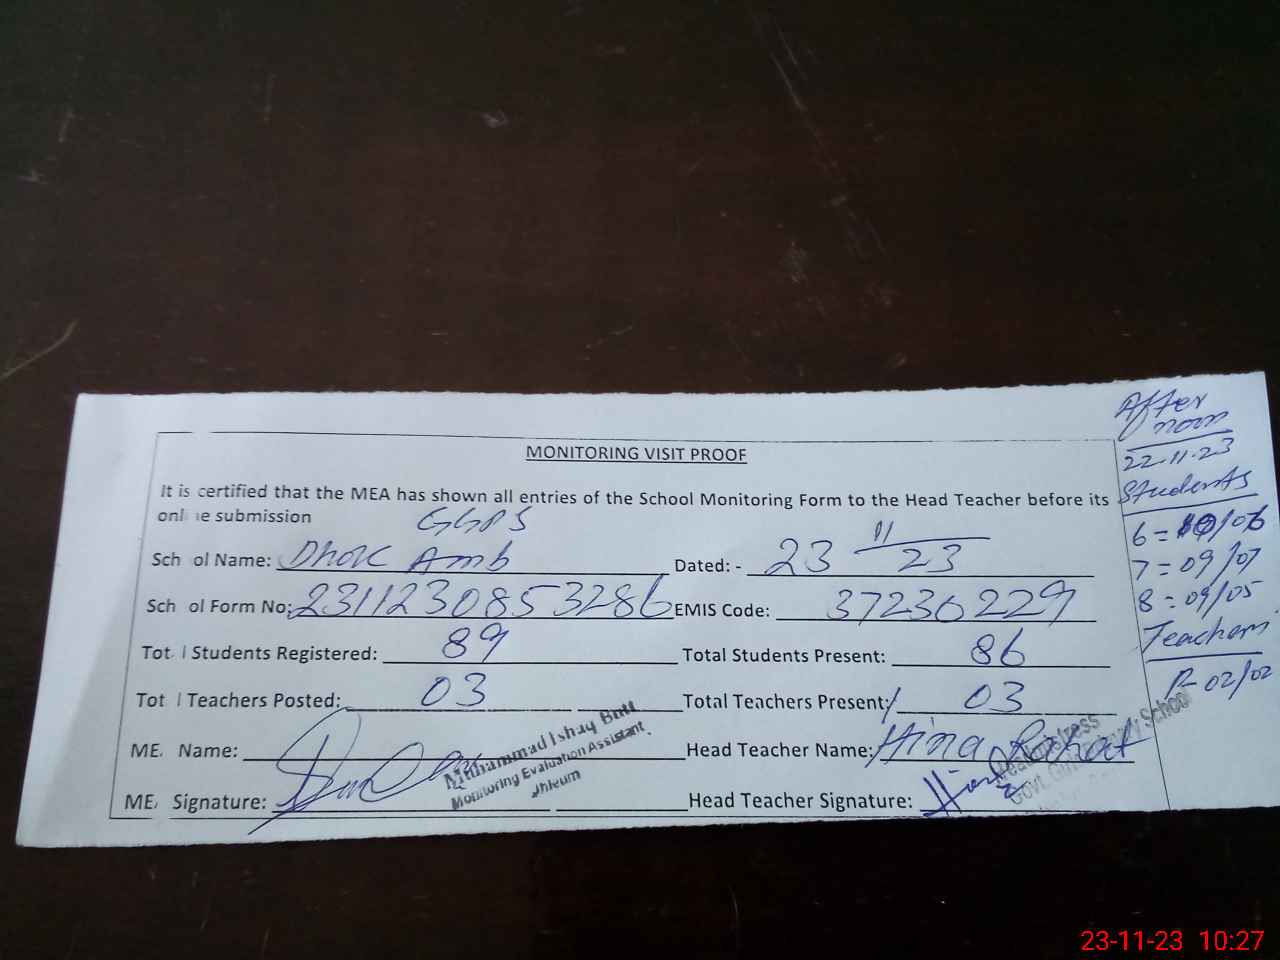 MONITORING VISIT PROOF
It is certified that the MEA has shown all entries of the School Monitoring Form to the Head Teacher before its
online submission
GGPS
School Name: Dhok Amb Dated: - 23 11 23
School Form No: 2311230853286 EMIS Code: 37230229
Total Students Registered: 89 Total Students Present: 86
Total Teachers Posted: 03 Total Teachers Present: 03
MEA Name: Head Teacher Name: Hina
MEA Signature: Head Teacher Signature:
Muhammad Ishaq Butt
Monitoring Evaluation Assistant
Jhleum
Headmistress
Govt. School
After
noon
22-11-23
Students
6 = 10/06
7 = 09/07
8 = 09/05
Teachers
P- 02/02
23-11-23 10:27